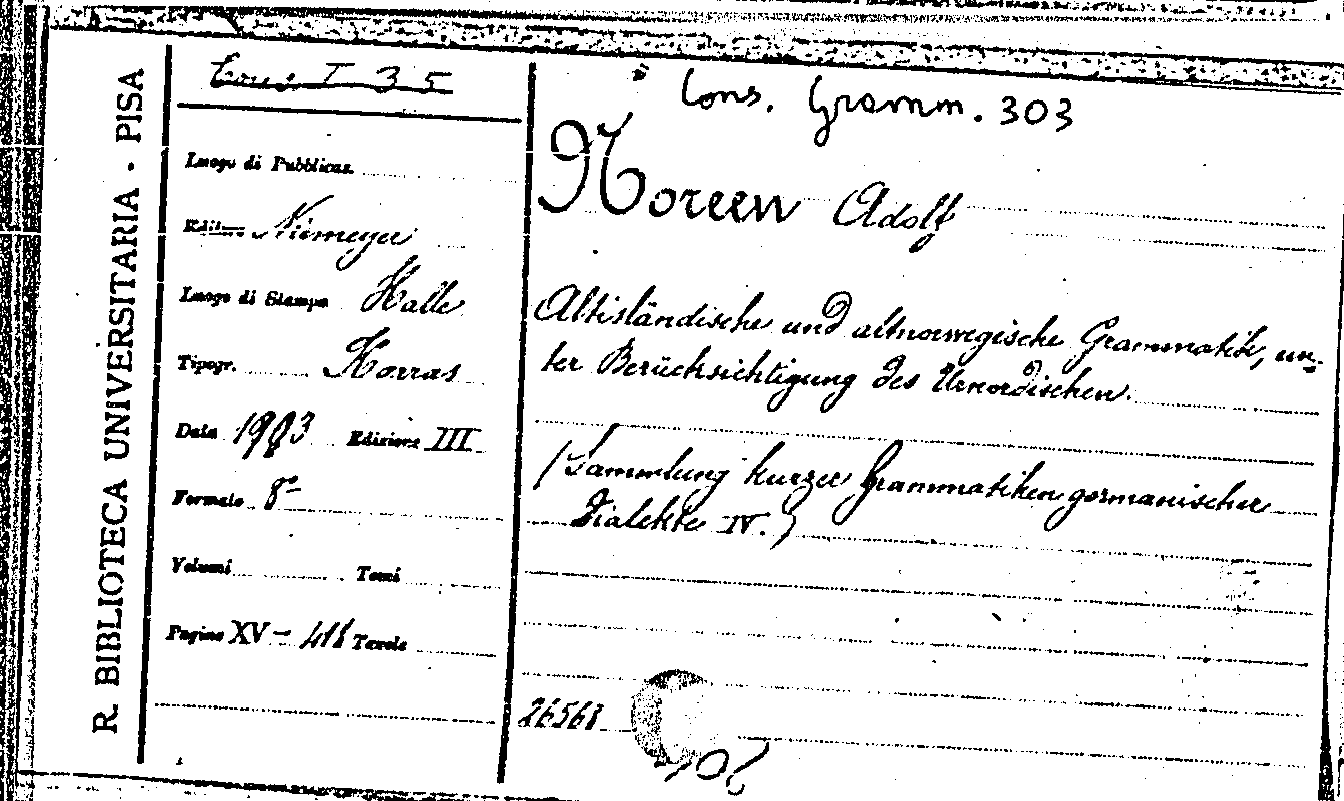 R. BIBLIOTECA UNIVERSITARIA - PISA
Cons I 35
Luogo di Pubblicaz.
Editore Niemeyer
Luogo di Stampa Halle
Tipogr. Karras
Data 1903 Edizione III
Formato 8°
Volumi Tomi
Pagine XV - Tavole
Cons. Gramm. 303
Noreen Adolf
Altisländische und altnorwegische Grammatik, un-
ter Berücksichtigung des Urnordischen.
(Sammlung kurzer Grammatiken germanischer
Dialekte IV.)
26568